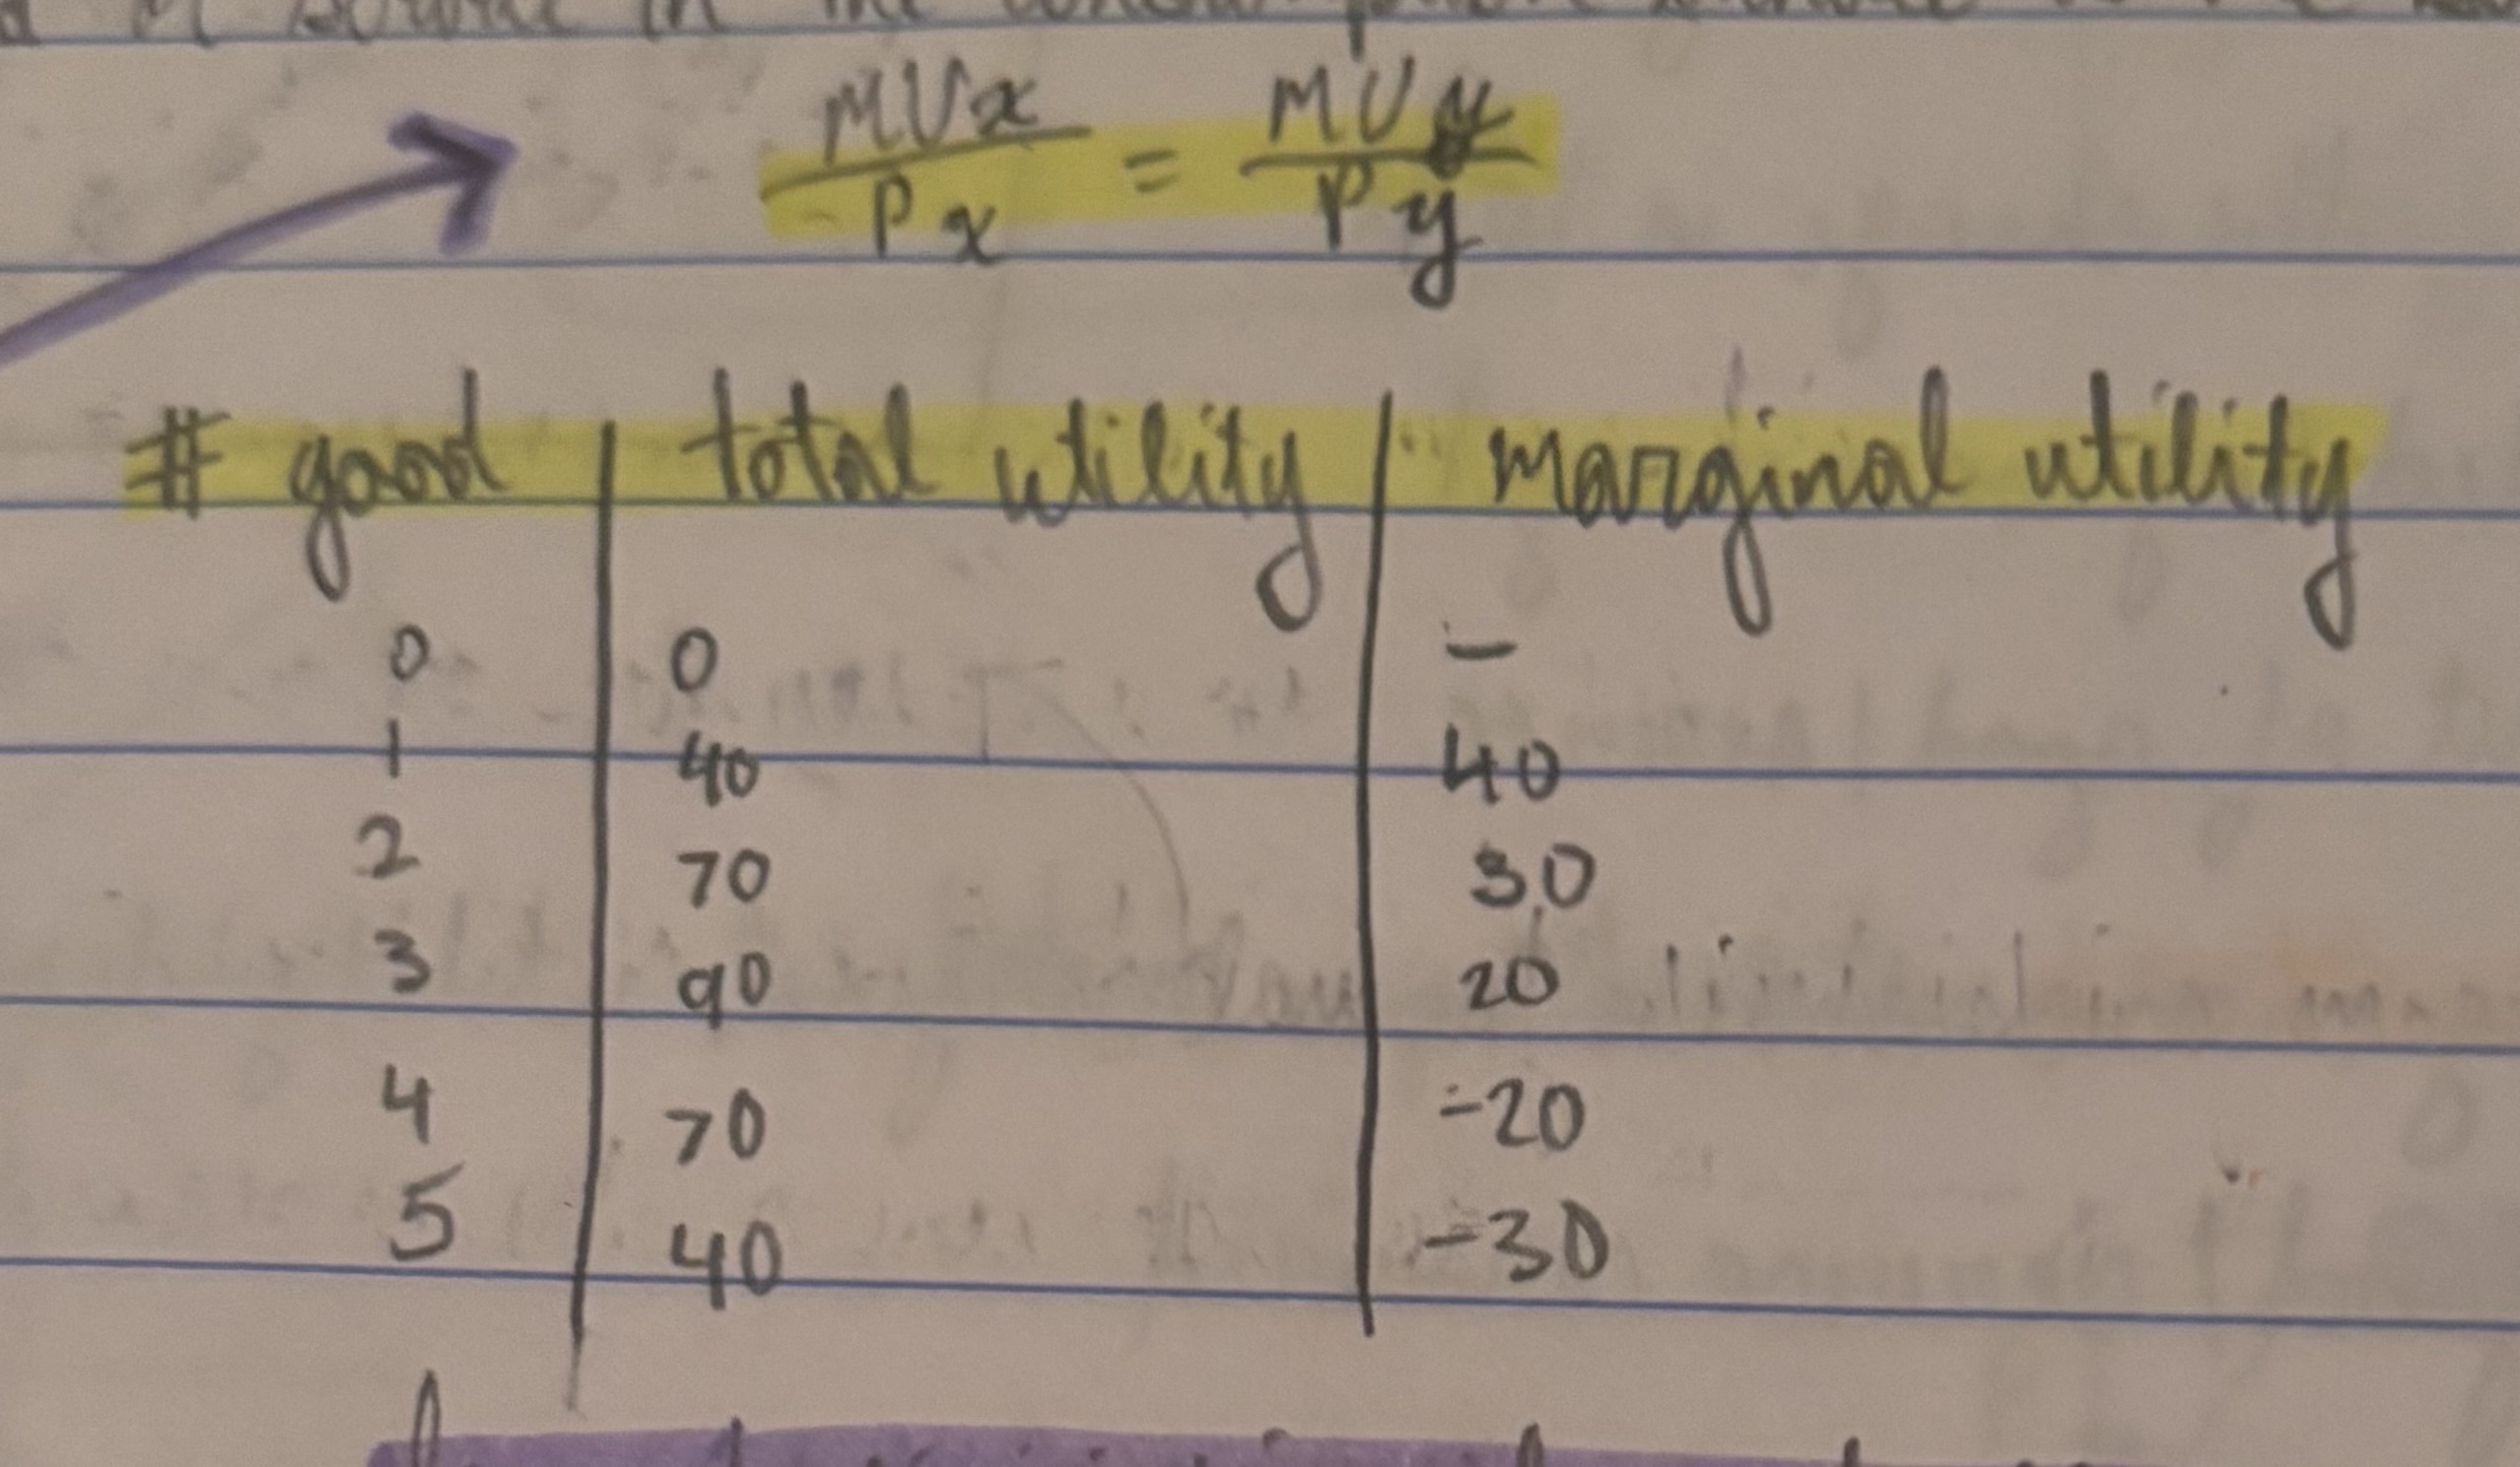 in the
MUx / Px = MUy / Py
# good | total utility | marginal utility
0 | 0 | —
1 | 40 | 40
2 | 70 | 30
3 | 90 | 20
4 | 70 | -20
5 | 40 | -30